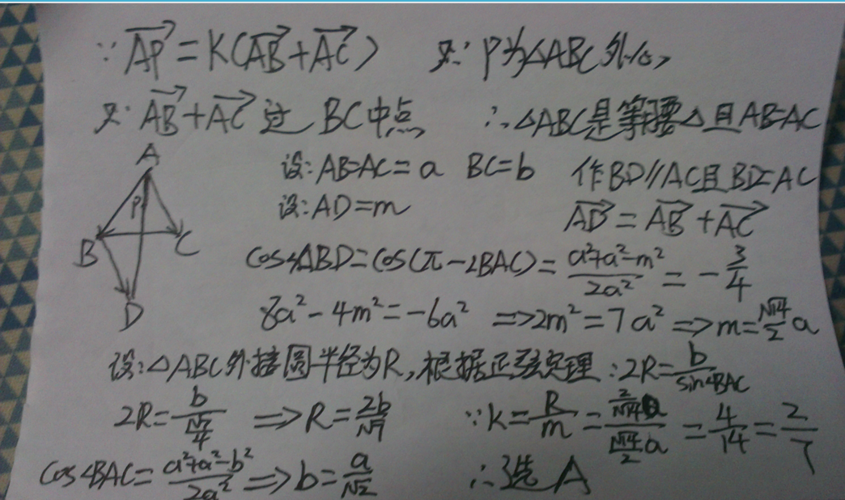 ∵ AP→ = K(AB→ + AC→) 又∵ P为△ABC外心,
又∵ AB→ + AC→ 过 BC中点 ∴△ABC是等腰△且AB=AC
A
设: AB=AC = a BC=b 作BD∥AC且BD=AC
P
设: AD=m AD→ = AB→ + AC→
B C
cos∠ABD = cos(π-∠BAC) = (a²+a²-m²)/(2a²) = -3/4
D
8a²-4m²=-6a² ⇒2m²=7a² ⇒m=(√14/2)a
设:△ABC外接圆半径为R,根据正弦定理:2R=b/sin∠BAC
2R=b/(√7/4) ⇒R=2b/√7 ∵K=R/m=((2/√14)a)/((√14/2)a)=4/14=2/7
cos∠BAC=(a²+a²-b²)/(2a²) ⇒b=a/√2 ∴选A